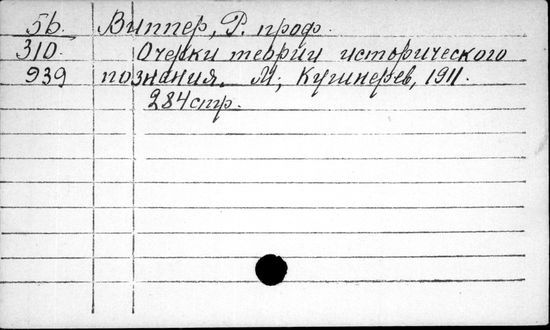 56. Виппер, Р. проф.
310. Очерки теории исторического
939 познания. М, Кушнерев, 1911.
284 стр.